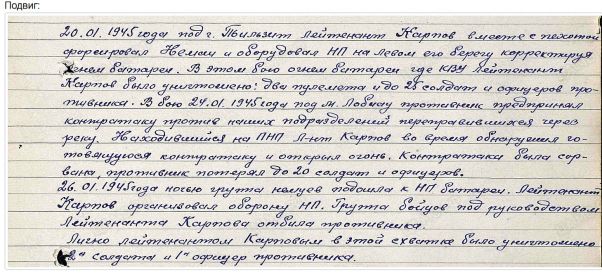 Подвиг:
20.01.1945 года под г. Тильзит лейтенант Карпов вместе с пехотой
форсировал Неман и оборудовал НП на левом его берегу корректируя
огнем батареи. В этом бою огнем батареи где КВУ лейтенант
Карпов было уничтожено: два пулемета и до 25 солдат и офицеров про-
тивника. В бою 24.01.1945 года под м. Лабиау противник предпринял
контратаку против наших подразделений переправившиеся через
реку. Находившийся на ПНП л-нт Карпов во время обнаружил го-
товящуюся контратаку и открыл огонь. Контратака была сор-
вана, противник потерял до 20 солдат и офицеров.
26.01.1945 года ночью группа немцев подошла к НП батареи. Лейтенант
Карпов организовал оборону НП. Группа бойцов под руководством
Лейтенанта Карпова отбила противника.
Лично лейтенантом Карповым в этой схватке было уничтожено
2а солдата и 1н офицер противника.